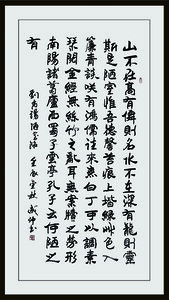 山不在高有僊則名水不在深有龍則靈
斯是陋室惟吾德馨苔痕上階綠艸色入
簾青談咲有鴻儒往來無白丁可以調素
琴閱金經無絲竹之亂耳無案牘之勞形
南陽諸葛廬西蜀子雲亭孔子云何陋之
有
劉禹錫陋室銘 壬辰